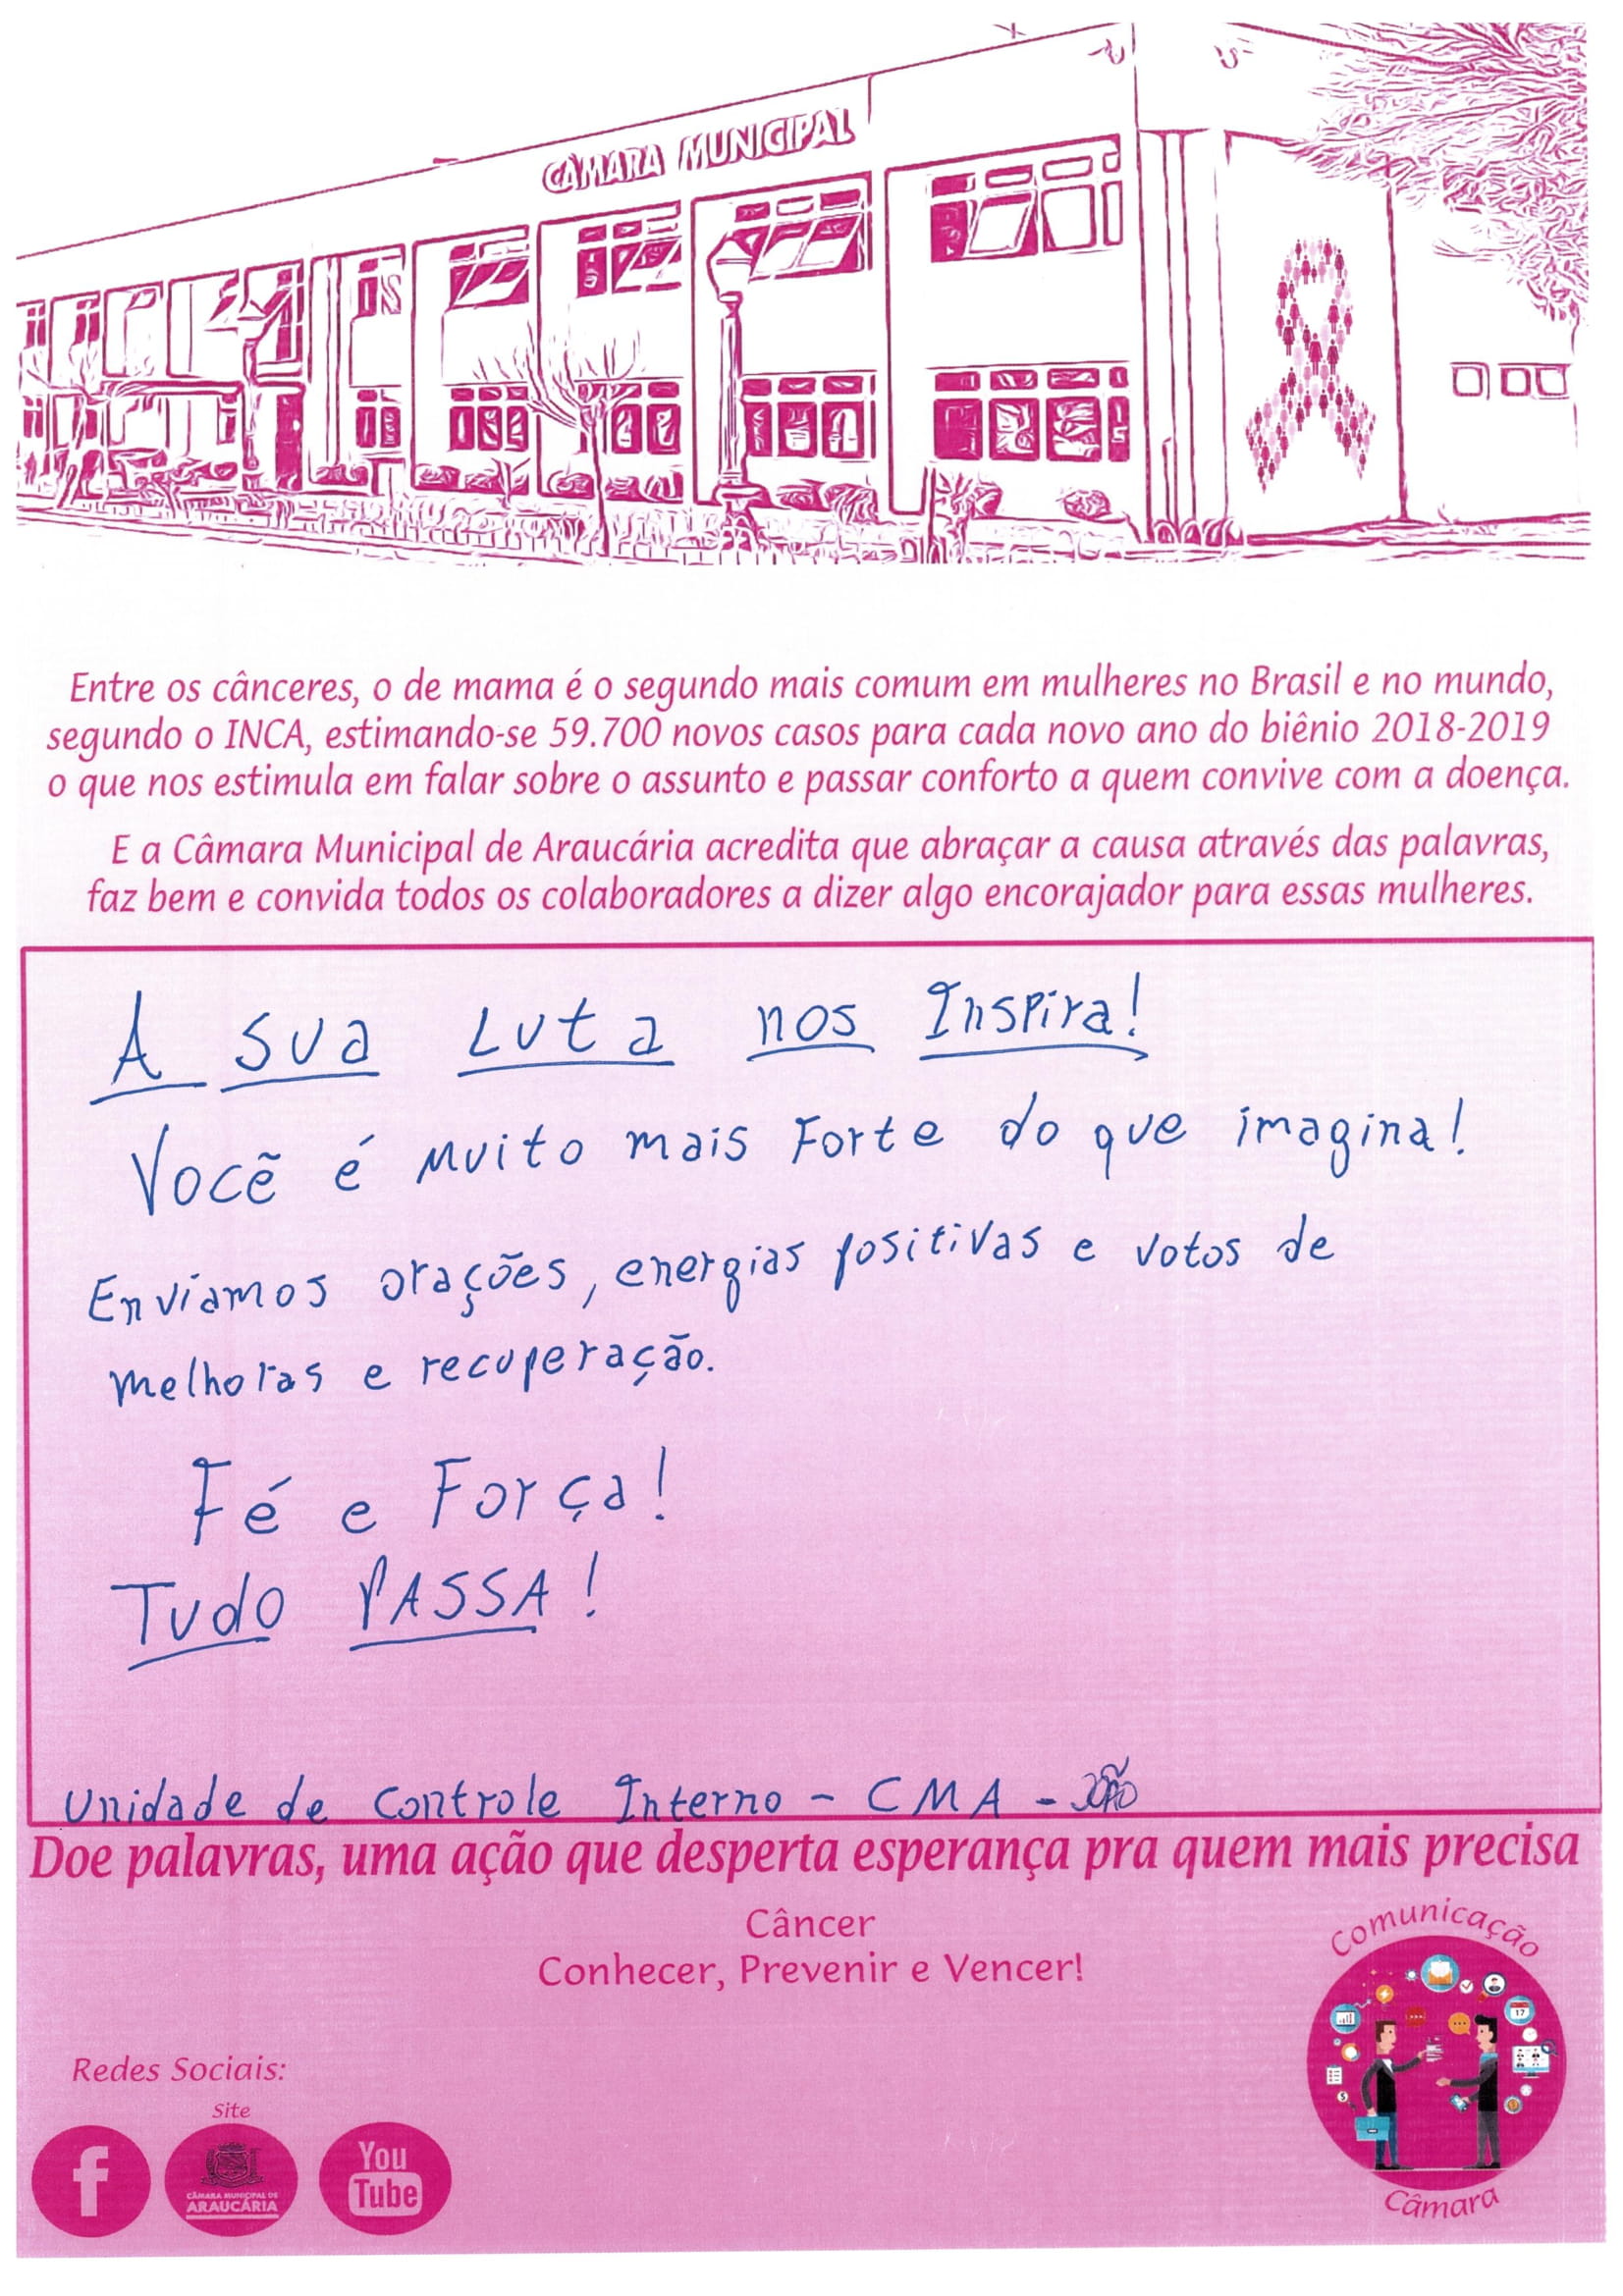 CÂMARA MUNICIPAL
Entre os cânceres, o de mama é o segundo mais comum em mulheres no Brasil e no mundo,
segundo o INCA, estimando-se 59.700 novos casos para cada novo ano do biênio 2018-2019
o que nos estimula em falar sobre o assunto e passar conforto a quem convive com a doença.
E a Câmara Municipal de Araucária acredita que abraçar a causa através das palavras,
faz bem e convida todos os colaboradores a dizer algo encorajador para essas mulheres.
A sua Luta nos Inspira!
Você é muito mais Forte do que imagina!
Enviamos orações, energias positivas e votos de
melhoras e recuperação.
Fé e Força!
Tudo PASSA!
Unidade de Controle Interno - CMA - João
Doe palavras, uma ação que desperta esperança pra quem mais precisa
Câncer
Conhecer, Prevenir e Vencer!
Comunicação
17
Câmara
Redes Sociais:
Site
f
CÂMARA MUNICIPAL DE
ARAUCÁRIA
You
Tube